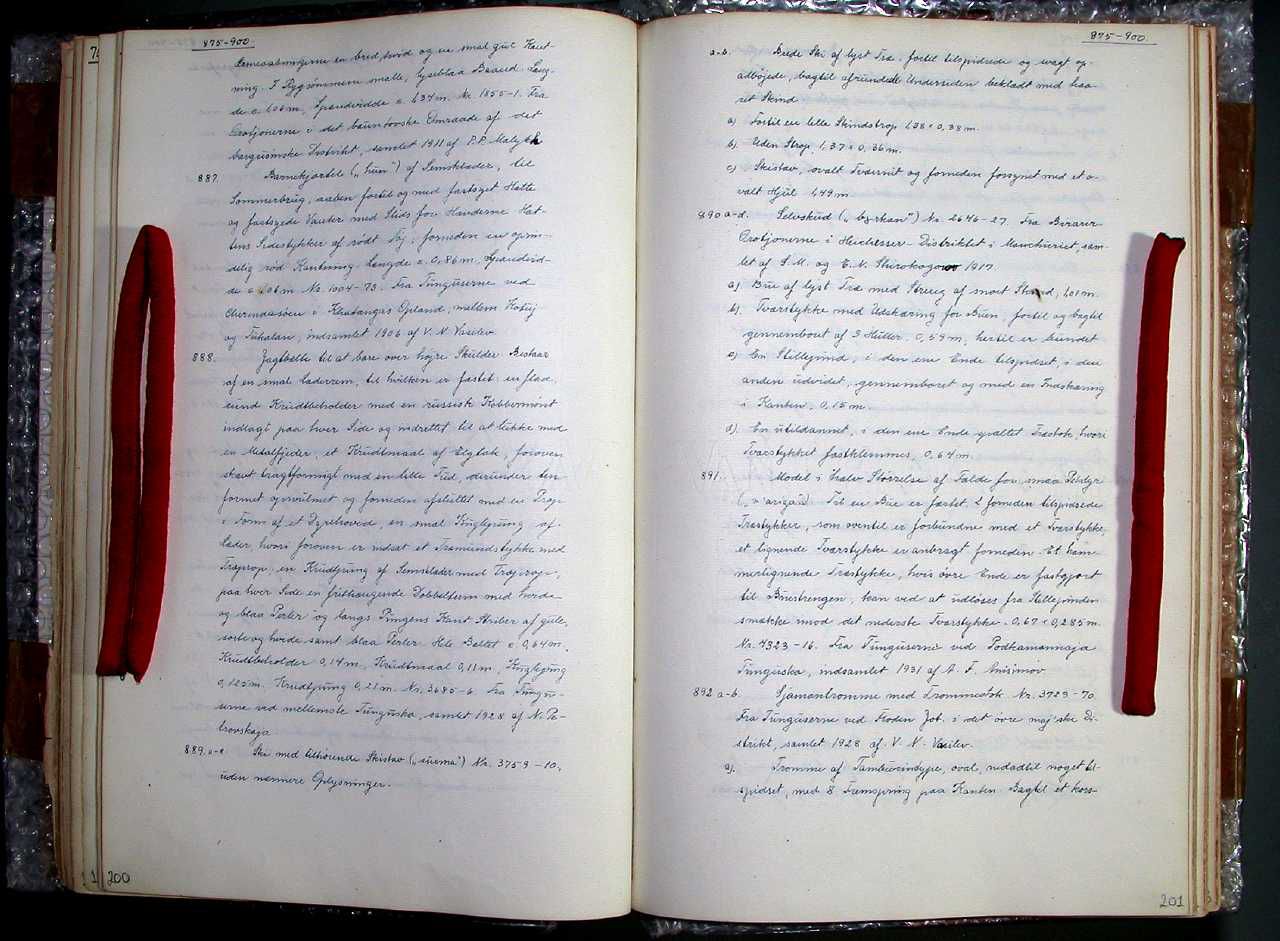 875-900.
Sameaabningerne en bred hvid og en smal gul Kant-
ning. I Rygsömmen smalle, lyseblaa Baand. Læng-
de c. 1,06 m, Spændvidde c. 1,34 m. Nr. 1855-1. Fra
Orotjonerne i det bauntovske Omraade af det
bargusinske Distrikt, samlet 1911 af P.P. Malykh
887. Barnekjortel („hun") af Semsklæder, til
Sommerbrug, aaben fortil og med fastsyet Hætte
og fastsyede Vanter med Slids for Hænderne. Hæt-
tens Sidestykker af rödt Töj, forneden en oprin-
delig röd Kantning. Længde c. 0,86 m, Spændvid-
de c. 1,06 m. Nr. 1004-73. Fra Tunguserne ved
i Khatangas Opland, mellem Kotuj
og indsamlet 1906 af V. N. Vasilev.
888. Jagtbælte til at bære over höjre Skulder. Bestaar
af en smal Læderrem, til hvilken er fæstet: en flad,
rund Krudtbeholder med en russisk Kobbermönt
indlagt paa hver Side og indrettet til at lukke med
en Metalfjeder, et Krudtmaal af Elgtak, foroven
skaaret tragtformigt med en lille Tud, derunder ten-
formet opsvulmet og forneden afsluttet med en Prop
i Form af et Dyrehoved, en smal Kuglepung af
Læder, hvori foroven er indsat et Træmundstykke med
Træprop, en Krudtpung af Semsklæder med Træprop,
paa hver Side en frithængende Dobbeltrem med hvide
og blaa Perler og langs Pungens Kant Striber af gule,
sorte og hvide samt blaa Perler. Hele Bæltet c. 0,64 m,
Krudtbeholder 0,14 m, Krudtmaal 0,11 m, Kuglepung
0,125 m. Krudtpung 0,21 m. Nr. 3685-6. Fra Tungu-
serne ved mellemste Tunguska, samlet 1928 af N. Pe-
trovskaja
889. a-c Ski med tilhörende Skistav („suema") Nr. 3759-10,
uden nærmere Oplysninger.
200
875-900.
a-b. Brede Ski af lyst Træ, fortil tilspidsede og svagt op-
adböjede, bagtil afrundede. Undersiden beklædt med haa-
ret Skind
a) Fortil en lille Skindstrop 1,38 × 0,38 m.
b). Uden Strop, 1,37 × 0,36 m.
c) Skistav, ovalt Tværsnit og forneden forsynet med et o-
valt Hjul 1,49 m
890 a-d. Selvskud („byrkan") Nr. 2646-27. Fra Birarer-
Orotjonerne i Distriktet i Manchuriet, sam-
let af S.M. og E.N. Shirokogorov 1917.
a). Bue af lyst Træ med Streng af snoet Skind, 1,01 m.
b). Tværstykke med Udskæring for Buen, fortil og bagtil
gennemboret af 3 Huller. 0,59 m, hertil er bundet
c) En Stillepind, i den ene Ende tilspidset, i den
anden udvidet, gennemboret og med en Indskæring
i Kanten, 0,15 m.
d). En utildannet, i den ene Ende spaltet Træstok, hvori
Tværstykket fastklemmes, 0,64 m.
891. Model i halv Störrelse af Fælde for smaa Pelsdyr
Til en Bue er fæstet 2 forneden tilspidsede
Træstykker, som oventil er forbundne med et Tværstykke,
et lignende Tværstykke er anbragt forneden. Et ham-
merlignende Træstykke, hvis övre Ende er fastgjort
til Buestrengen, kan ved at udlöses fra Stillepinden
smække mod det nederste Tværstykke. 0,67 × 0,285 m.
Nr. 4323-16. Fra Tunguserne ved Podkamennaja
Tunguska, indsamlet 1931 af A. F. Anisimov.
892 a-b. Sjamantromme med Trommestok Nr. 3729-70.
Fra Tunguserne ved Floden Jot. i det övre maj'ske Di-
strikt, samlet 1928 af. V. N. Vasilev.
a). Tromme af Tambourintype, oval, nedadtil noget til-
spidset, med 8 Fremspring paa Kanten. Bagtil et kors-
201